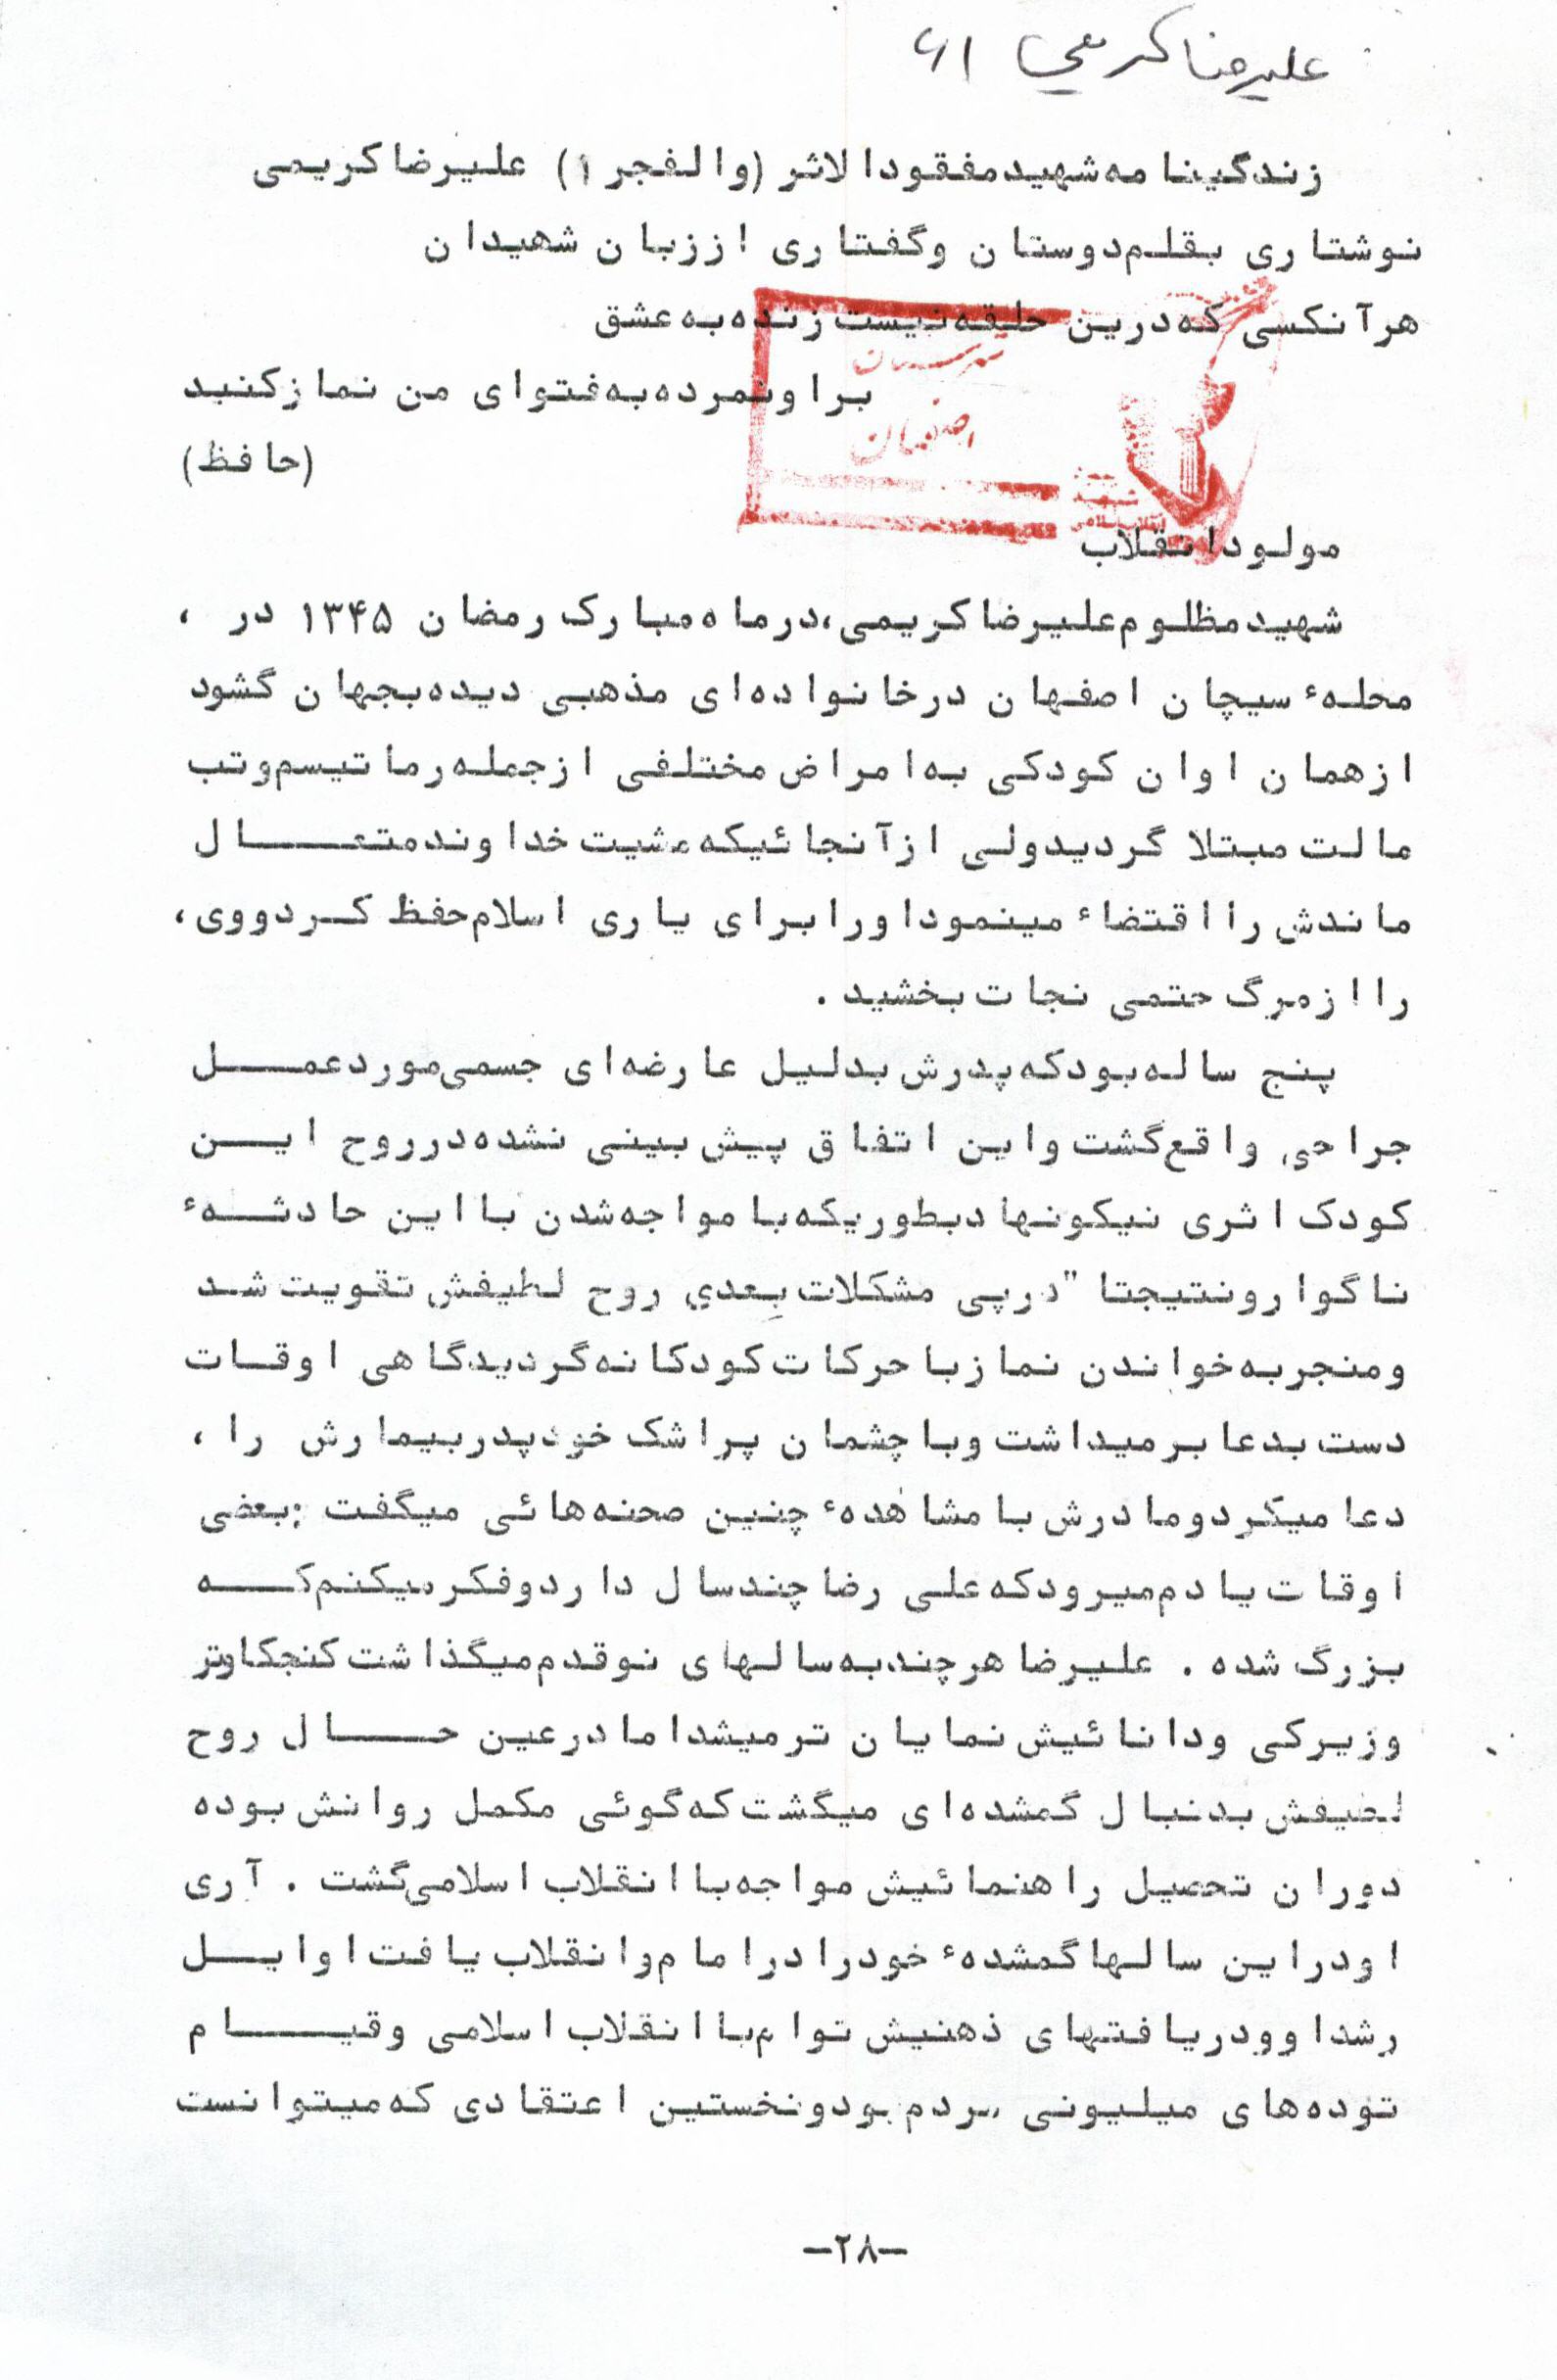 علیرضا کریمی ۶۱
زندگینامه شهید مفقودالاثر (والفجر ۱) علیرضا کریمی
نوشتاری بقلم دوستان وگفتاری اززبان شهیدان
هرآنکسی که درین حلقه نیست زنده به عشق
براونمرده به فتوای من نمازکنید
(حافظ)
شهرستان
اصفهان
بنیاد شهید
انقلاب اسلامی
مولودانقلاب
شهید مظلوم علیرضا کریمی، درماه مبارک رمضان ۱۳۴۵ در ،
محلهٔ سیچان اصفهان درخانواده‌ای مذهبی دیده بجهان گشود
ازهمان اوان کودکی به امراض مختلفی ازجمله رماتیسم وتب
مالت مبتلا گردیدولی ازآنجائیکه مشیت خداوند متعـــال
ماندش رااقتضاء مینمود اورابرای یاری اسلام حفظ کــردووی،
راازمرگ حتمی نجات بخشید .
پنج ساله بودکه پدرش بدلیل عارضه‌ای جسمی مورد عمـــل
جراحی واقع گشت واین اتفاق پیش بینی نشده درروح ایــن
کودک اثری نیکونهاد بطوریکه با مواجه شدن بااین حادثــهٔ
ناگوارونتیجتا" درپی مشکلات بعدی روح لطیفش تقویت شـد
ومنجربه خواندن نمازبا حرکات کودکانه گردیدگاهی اوقـات
دست بدعا برمیداشت وبا چشمان پراشک خودپدربیمارش را ،
دعا میکردومادرش با مشاهدهٔ چنین صحنه‌هائی میگفت :بعضی
اوقات یادم میرودکه علی رضا چندسال داردوفکرمیکنم کـــه
بزرگ شده . علیرضا هرچندبه سالهای نوقدم میگذاشت کنجکاوتر
وزیرکی ودانائیش نمایان ترمیشداما درعین حـــال روح
لطیفش بدنبال گمشده‌ای میگشت که گوئی مکمل روانش بوده
دوران تحصیل راهنمائیش مواجه باانقلاب اسلامی گشت . آری
اودراین سالها گمشدهٔ خودرادرامام وانقلاب یافت اوایــل
رشداوودریافتهای ذهنیش توام باانقلاب اسلامی وقیـــام
توده‌های میلیونی مردم بودونخستین اعتقادی که میتوانست
-۲۸-